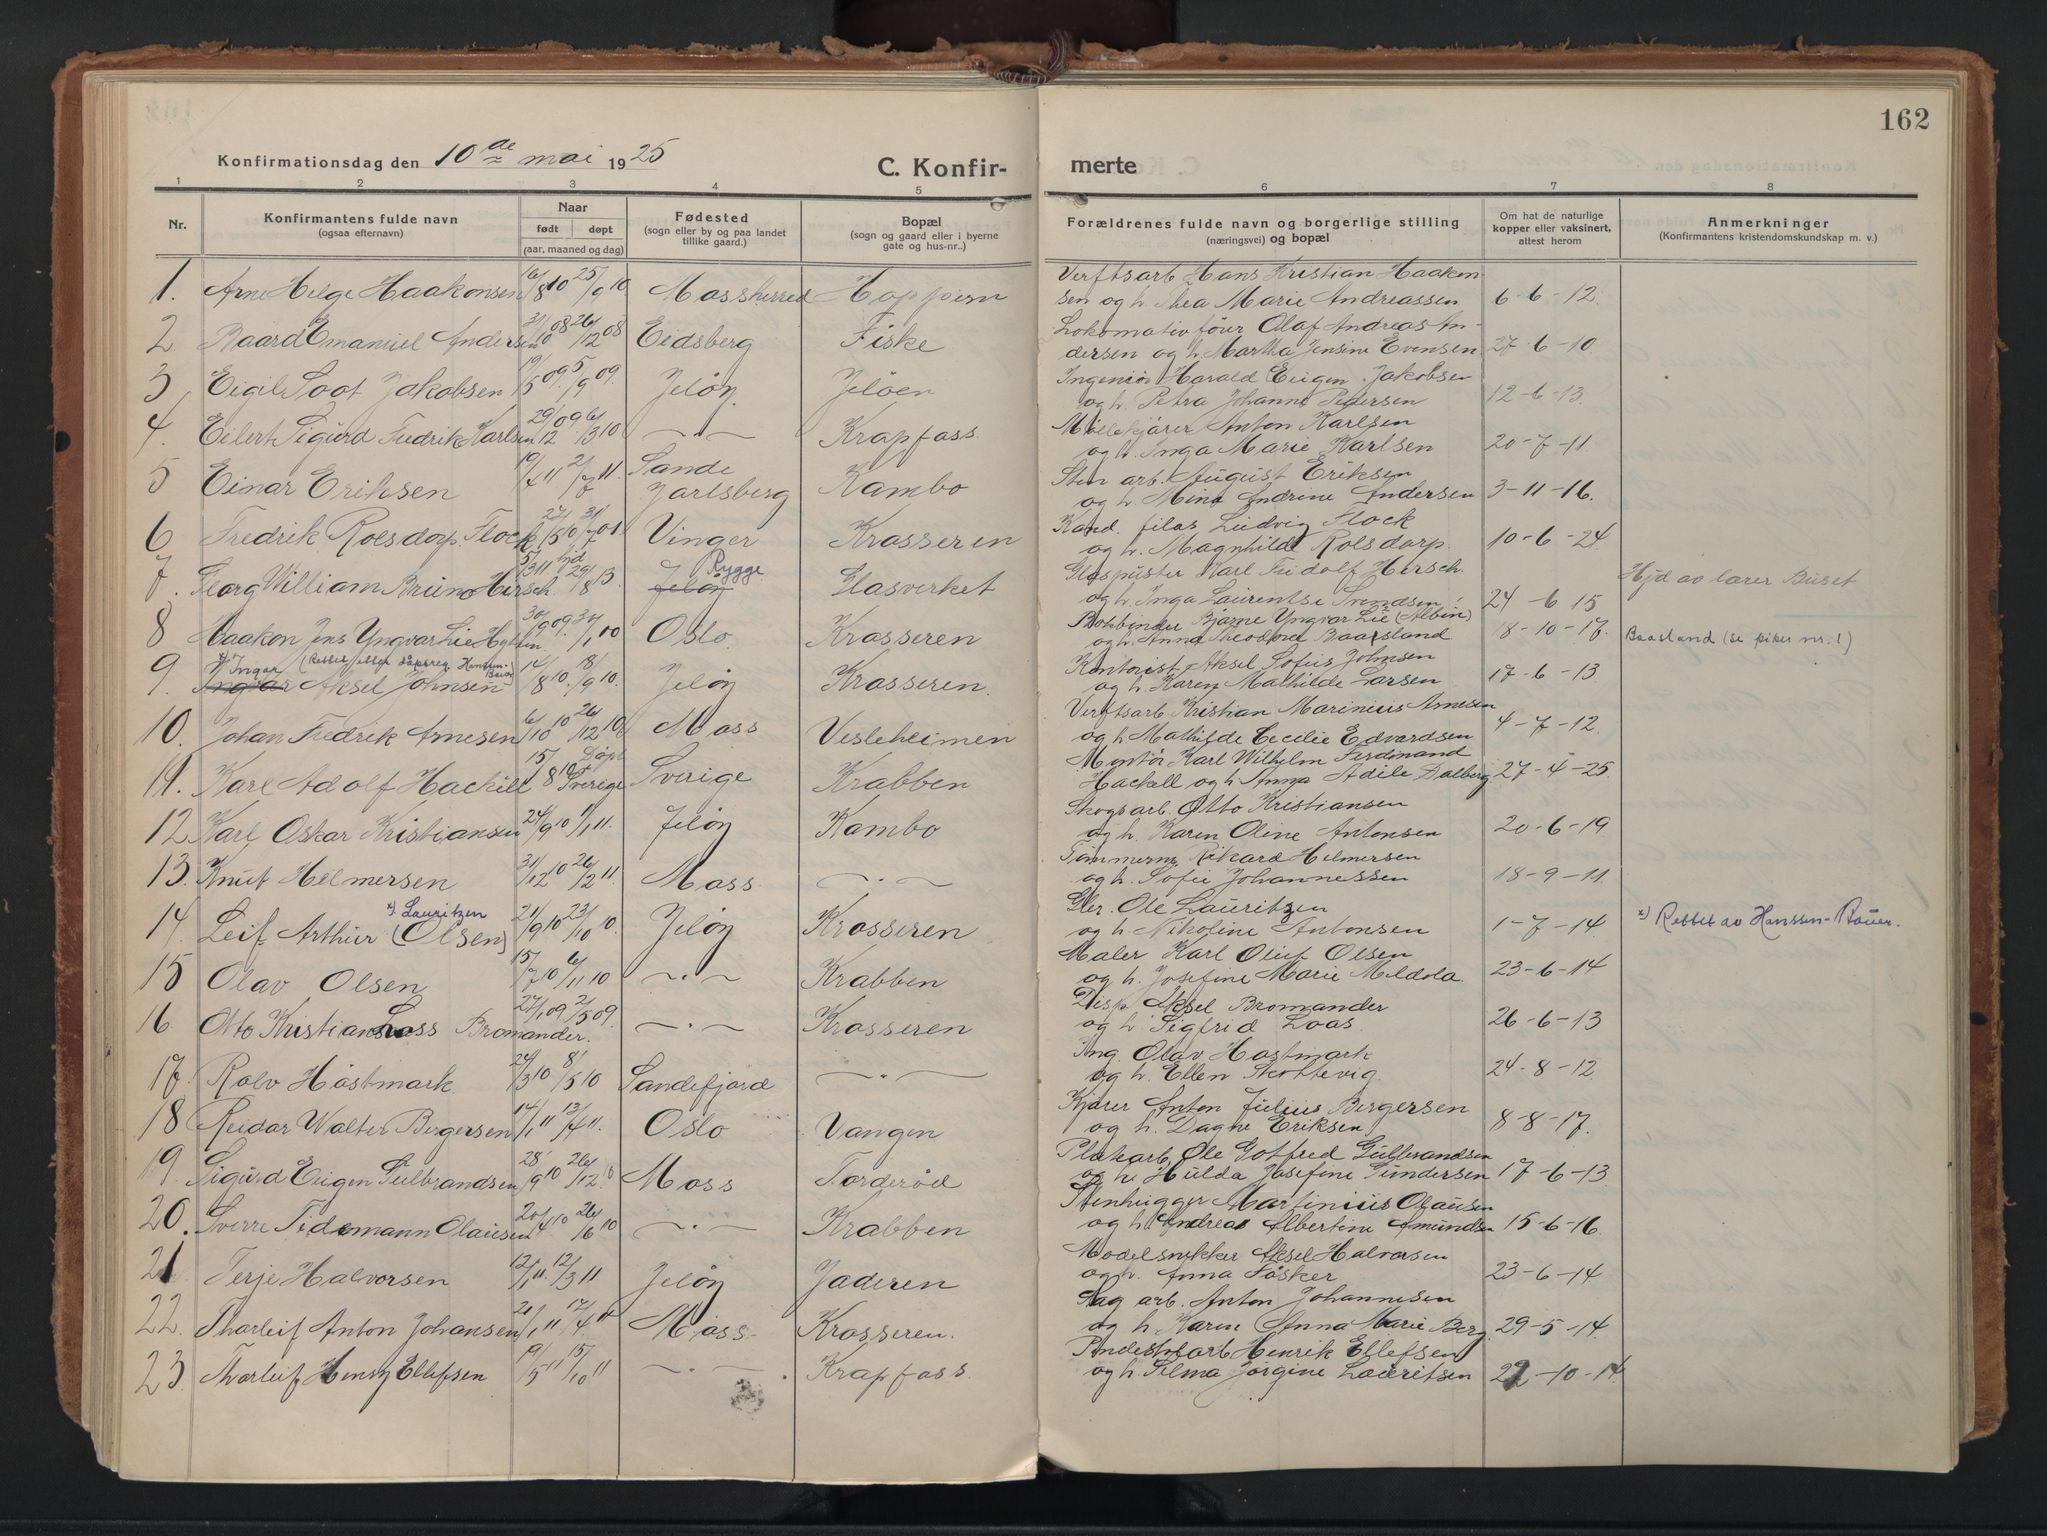 162
Konfirmationsdag den 10de mai 1925
C. Konfirmerte
1 2 3 4 5 6 7 8
Nr.
Konfirmantens fulde navn
(ogsaa efternavn)
Naar
født døpt
(aar, maaned og dag)
Fødested
(sogn eller by og paa landet
tillike gaard.)
Bopæl
(sogn og gaard eller i byerne
gate og hus-nr..)
Forældrenes fulde navn og borgerlige stilling
(næringsvei) og bopæl
Om hat de naturlige
kopper eller vaksinert,
attest herom
Anmerkninger
(Konfirmantens kristendomskundskap m. v.)
1. Arne Helge Haakonsen 16/8 10 25/9 10 Mossherred Noppern
Verftsarb Hans Kristian Haakon-
sen og h. Thea Marie Andreassen 6-6-12.
2. Baard Emanuel Andersen 31/10 08 26/12 08 Eidsberg Fiske
Lokomativfører Olaf Andreas An-
dersen og h. Martha Jensine Evensen 27-6-10
3 Eigil Soot Jakobsen 19/5 09 5/9 09. Jeløy Jeløen
Ingeniør Harald Eugen Jakobsen
og h. Petra Johanne Pedersen 12-6-13.
4. Eilert Sigurd Fredrik Karlsen 29/12 09 6/3 10 —„— Krapfoss.
Møllekjører Anton Karlsen
og h. Inga Marie Karlsen 20-7-11.
5 Einar Eriksen 19/4 11 2/7 11. Sande Jarlsberg Kambo
Sten arb. August Eriksen
og h. Mina Andrine Andersen 3-11-16.
6 Fredrik Rolsdorp Flock 27/5 10 31/7 01 Vinger Krosseren
Kand. filos Ludvig Flock
og h. Magnhilde Rolsdorp. 10-6-24.
7. Georg William Bruno Hirsch. 5/3 11 hjd 29/8 13. Jeløy Rygge Glasverket
Glaspuster Karl Fridolf Hirsch.
og h. Inga Laurentse Svendsen 24-6-15
Hjd av lærer Buset
8 Haakon Jens Yngvar Lie 30/9 09. 1/1 10 Oslo. Krosseren
Bokbinder Bjarne Yngvar Lie (Albin)
og h. Anna Theodora Baarsland 18-10-17.
Baasland (se piker nr. 1)
9. x) Ingar (Rettet efter dåpsreg. Hanssen-Bauer)
Ingvar Aksel Johnsen 14/8 10. 18/9 10. Jeløy Krosseren.
Kontorist Aksel Sofus Johnsen
og h. Karen Mathilde Larsen 17-6-13
10. Johan Fredrik Arnesen 6/10 10 26/12 10 Moss Vesleheimen
Verftsarb. Kristian Marinius Arnesen
og h Mathilde Cecilie Edvardsen 4-7-12.
11. Karl Adolf Hackill 15/8 10 Døpt Sverige Sverige Krabben
Montør Karl Wilhelm Ferdinand
Hackell og h. Anna Adile Dalberg 27-4-25.
12 Karl Oskar Kristiansen 24/9 10 1/1 11. Jeløy Kambo
Skogsarb. Otto Kristiansen
og h. Karen Oline Antonsen 20-6-19
13. Knut Helmersen 31/12 10 26/2 11. Moss —„—
Tømmerm Rikard Helmersen
og h. Sofie Johannessen 18-9-11.
14. Leif Arthur x) Lauritzen (Olsen) 21/9 10 23/10 10. Jeløy Krosseren
Gler. Ole Lauritzen
og h Nikoline Antonsen 1-7-14.
x) Rettet av Hanssen-Bauer.
15 Olav Olsen 15/7 10 6/11 10 —„— Krabben
Maler Karl Oluf Olsen
og h. Josefine Marie Meldola 23-6-14
16 Otto Kristian Loss Bromander. 27/1 09 2/5 09. —„— Krosseren
Disp. Aksel Bromander
og h. Sigfrid Loas. 26-6-13
17. Rolv Hostmark 24/3 10 8/5 10 Sandefjord —„—
Ing. Olav Hostmark
og h. Ellen Skottevig. 24-8-12.
18 Reidar Walter Bergersen 14/1 11 13/4 11. Oslo Vangen
Kjører Anton Julius Bergersen
og h. Dagne Eriksen 8-8-17.
19. Sigurd Eugen Gulbrandsen 28/9 10 26/12 10 Moss Torderød
Platearb. Ole Gotfred Gulbrandsen
og h. Hulda Josefine Gundersen 17-6-13
20. Sverre Tidemann Olausen 20/4 10 26/6 10 —„— Krabben
Stenhugger Martinius Olausen
og h. Andrea Albertine Amundsen 15-6-16
21 Terje Halvorsen 12/1 11. 12/3 11 Jeløy Jaderen
Modelsnekker Aksel Halvorsen
og h. Anna Fösker 23-6-14
22. Thorleif Anton Johansen 21/1 11 17/4 11 Moss. Krosseren.
Sag arb. Anton Johannesen
og h Karen Anna Marie Berg. 29-5-14.
23. Thorleif Henry Ellefsen 19/5 11 15/10 11 —„— Krapfoss.
Henrik Ellefsen
og h. Selma Jørgine Lauritsen 22-10-14.